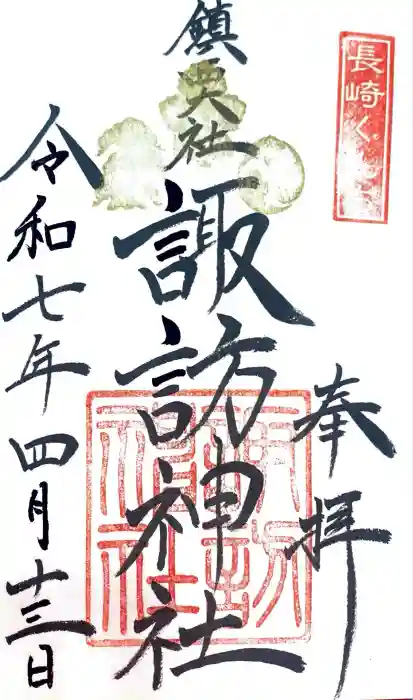 長崎くんち
奉拝
鎮西大社
諏訪神社
令和七年四月十三日
諏訪神社